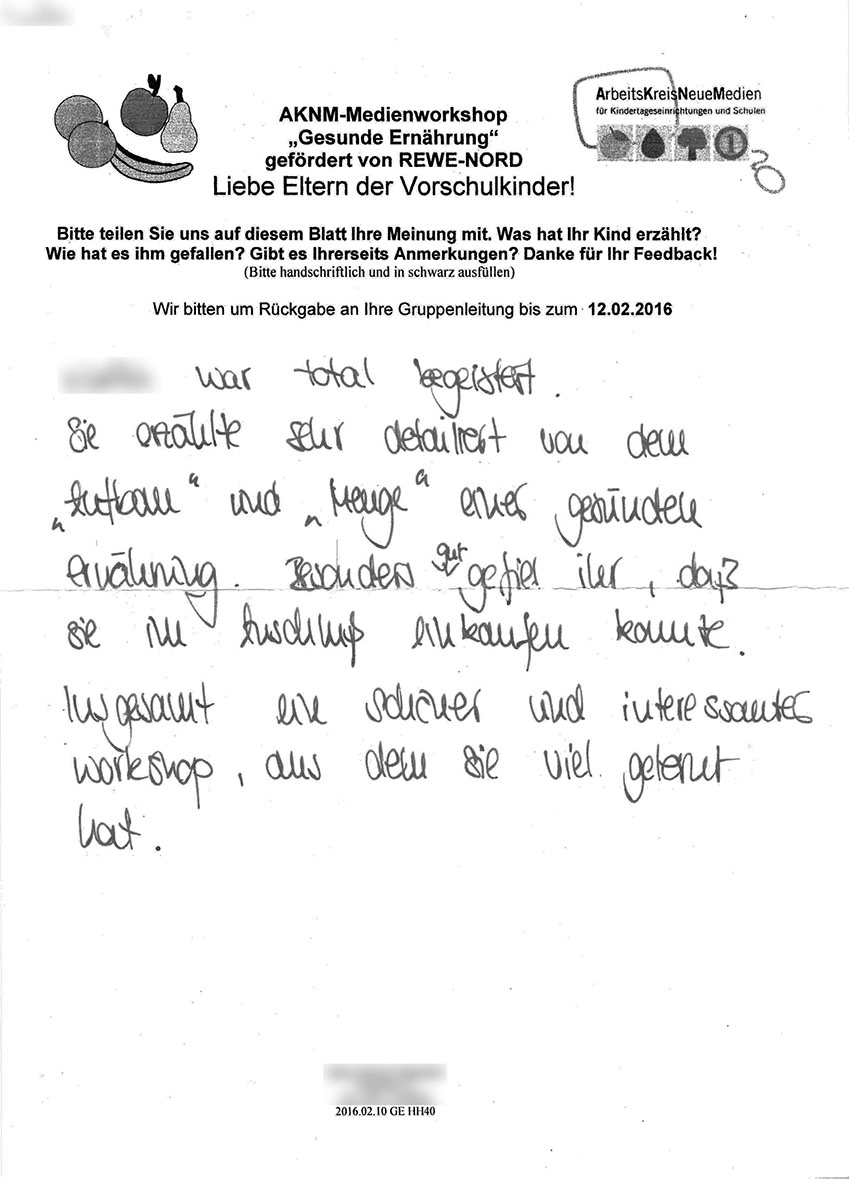 ArbeitsKreisNeueMedien
für Kindertageseinrichtungen und Schulen
AKNM-Medienworkshop
„Gesunde Ernährung“
gefördert von REWE-NORD
Liebe Eltern der Vorschulkinder!
Bitte teilen Sie uns auf diesem Blatt Ihre Meinung mit. Was hat Ihr Kind erzählt?
Wie hat es ihm gefallen? Gibt es Ihrerseits Anmerkungen? Danke für Ihr Feedback!
(Bitte handschriftlich und in schwarz ausfüllen)
Wir bitten um Rückgabe an Ihre Gruppenleitung bis zum 12.02.2016
war total begeistert.
Sie erzählte sehr detailiert von dem
„Aufbau“ und „Menge“ einer gesunden
Ernährung. Besonders gut gefiel ihr, daß
sie im Anschluß einkaufen konnte.
Insgesamt ein schöner und interessantes
Workshop, aus dem sie viel gelernt
hat.
2016.02.10 GE HH40